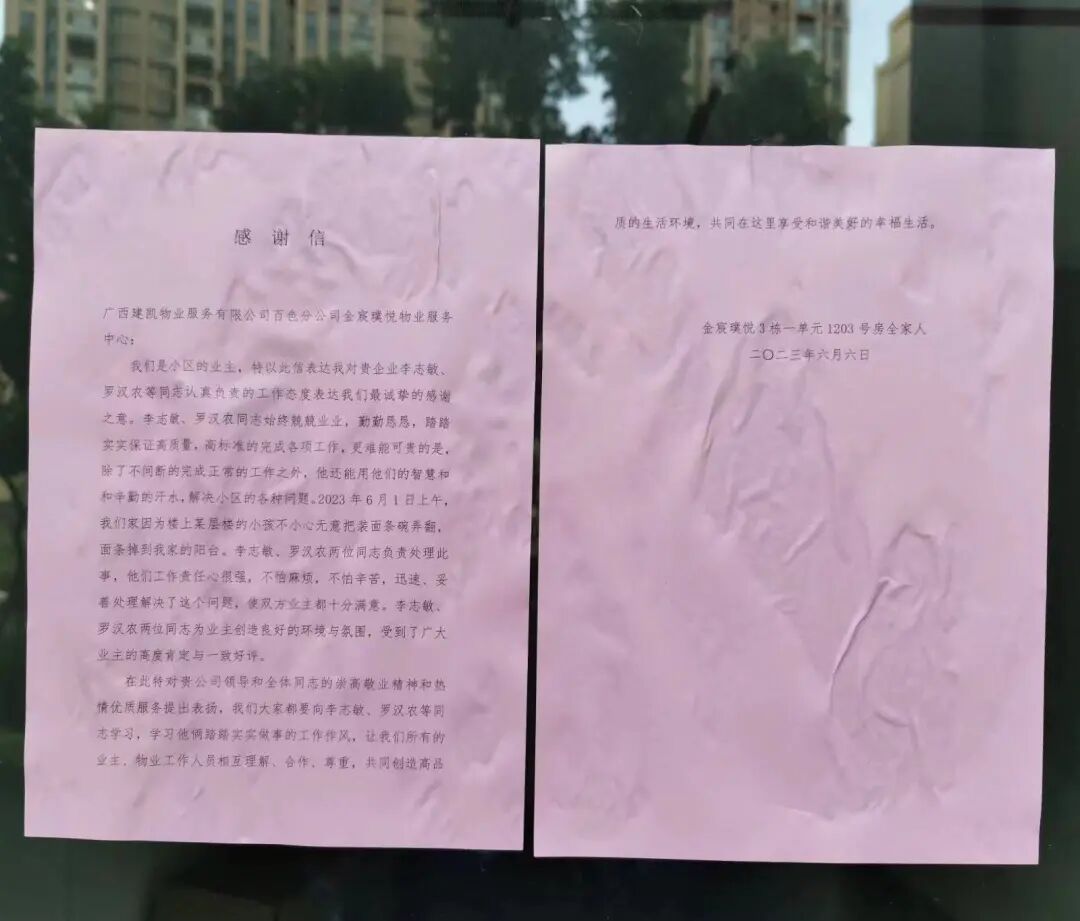 感谢信
广西建凯物业服务有限公司百色分公司金宸璞悦物业服务
中心：
我们是小区的业主，特以此信表达我对贵企业李志敏、
罗汉农等同志认真负责的工作态度表达我们最诚挚的感谢
之意。李志敏、罗汉农同志始终兢兢业业，勤勤恳恳，踏踏
实实保证高质量，高标准的完成各项工作，更难能可贵的是，
除了不间断的完成正常的工作之外，他还能用他们的智慧和
和辛勤的汗水，解决小区的各种问题。2023年6月1日上午，
我们家因为楼上某层楼的小孩不小心无意把装面条碗弄翻，
面条掉到我家的阳台。李志敏、罗汉农两位同志负责处理此
事，他们工作责任心很强，不怕麻烦，不怕辛苦，迅速、妥
善处理解决了这个问题，使双方业主都十分满意。李志敏、
罗汉农两位同志为业主创造良好的环境与氛围，受到了广大
业主的高度肯定与一致好评。
在此特对贵公司领导和全体同志的崇高敬业精神和热
情优质服务提出表扬，我们大家都要向李志敏、罗汉农等同
志学习，学习他俩踏踏实实做事的工作作风，让我们所有的
业主、物业工作人员相互理解、合作、尊重，共同创造高品
质的生活环境，共同在这里享受和谐美好的幸福生活。
金宸璞悦3栋一单元1203号房全家人
二〇二三年六月六日